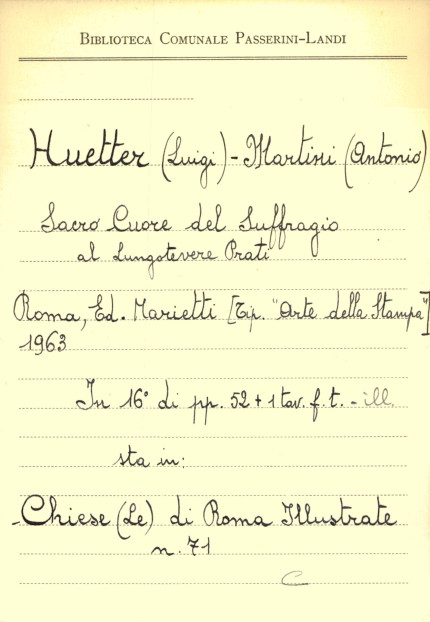 BIBLIOTECA COMUNALE PASSERINI-LANDI
Huetter (Luigi) - Martini (Antonio)
Sacro Cuore del Suffragio
al Lungotevere Prati
Roma, Ed. Marietti [Tip. "Arte della Stampa"]
1963
In 16° di pp. 52 + 1 tav. f. t. - ill.
sta in:
- Chiese (Le) di Roma Illustrate
n. 71
C